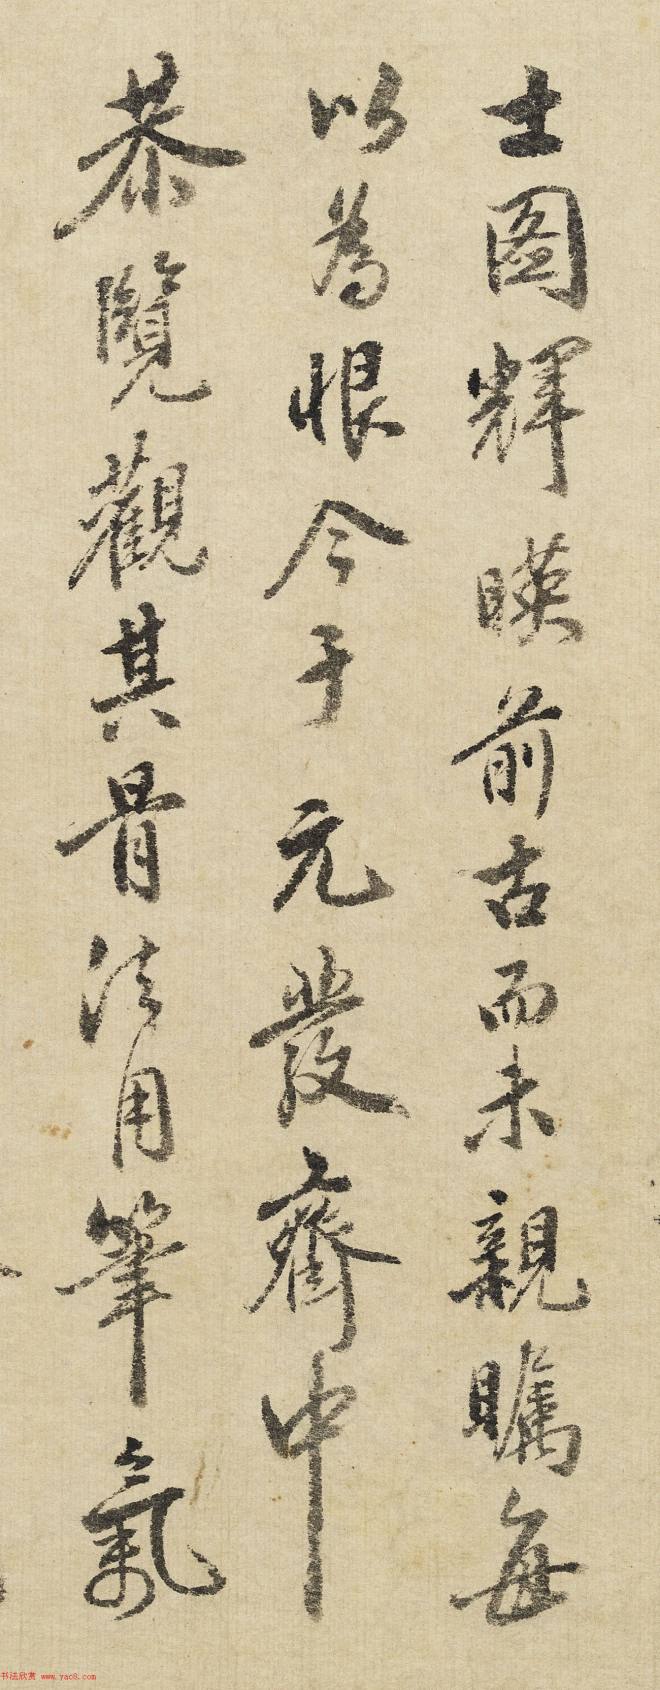 士圖輝暎前古而未親矚每
以為恨今于元發齋中
恭覽觀其骨法用筆氣
书法欣赏 www.yac8.com